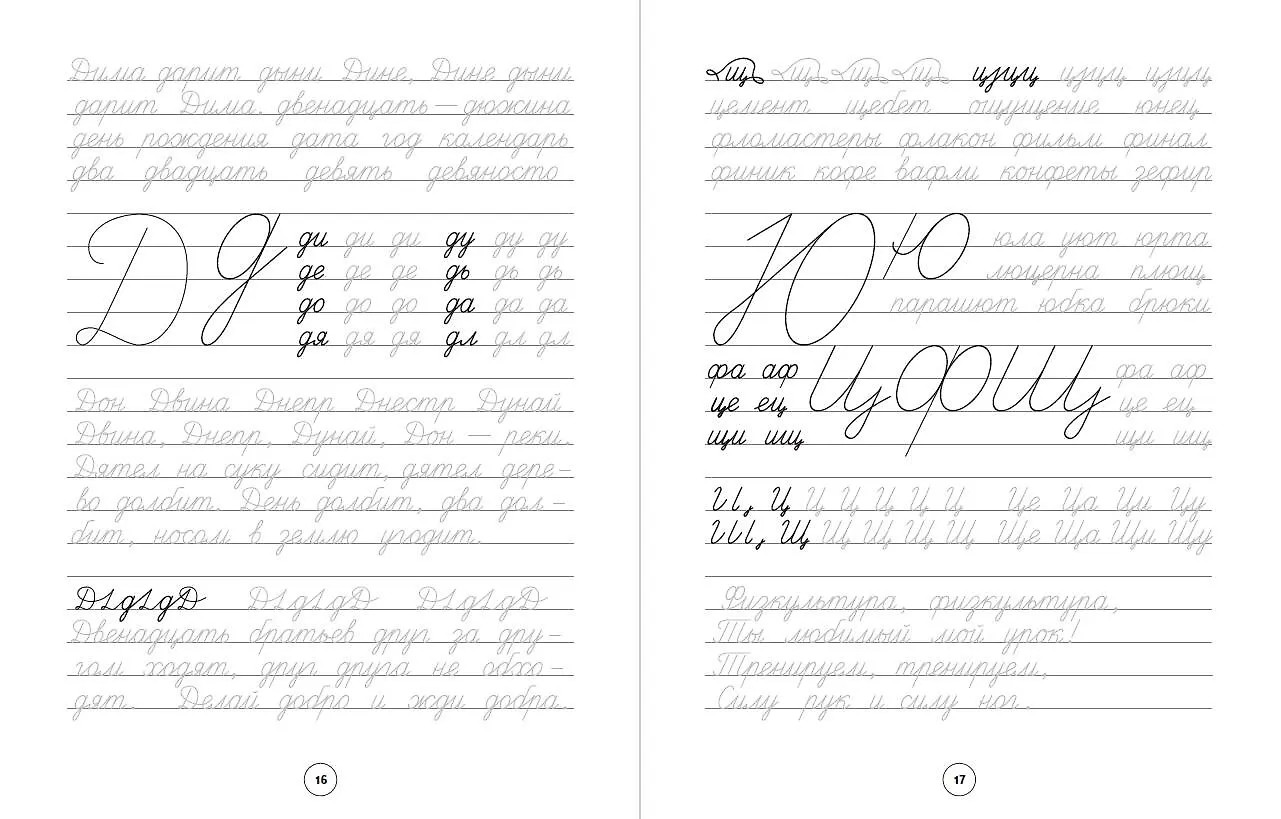 Дима дарит дыни Дине, Дине дыни
дарит Дима. двенадцать — дюжина
день рождения дата год календарь
два двадцать девять девяносто
Д д
ди ди ди ду ду ду
де де де дь дь дь
до до до да да да
дя дя дя дл дл дл
Дон Двина Днепр Днестр Дунай
Двина, Днепр, Дунай, Дон — реки.
Дятел на суку сидит, дятел дере-
во долбит. День долбит, два дол-
бит, носом в землю угодит.
Двенадцать братьев друг за дру-
гом ходят, друг друга не обхо-
дят. Делай добро и жди добра.
16
цемент щебет ощущение юнец
фломастеры флакон фильм финал
финик кофе вафли конфеты зефир
Ю ю
юла уют юрта
люцерна плющ
парашют юбка брюки
фа аф Ц Ф Щ фа аф
це ец це ец
щи ищ щи ищ
Ц Ц Ц Ц Ц Ц Це Ца Ци Цу
Щ Щ Щ Щ Щ Ще Ща Щи Щу
Физкультура, физкультура,
Ты любимый мой урок!
Тренируем, тренируем,
Силу рук и силу ног.
17